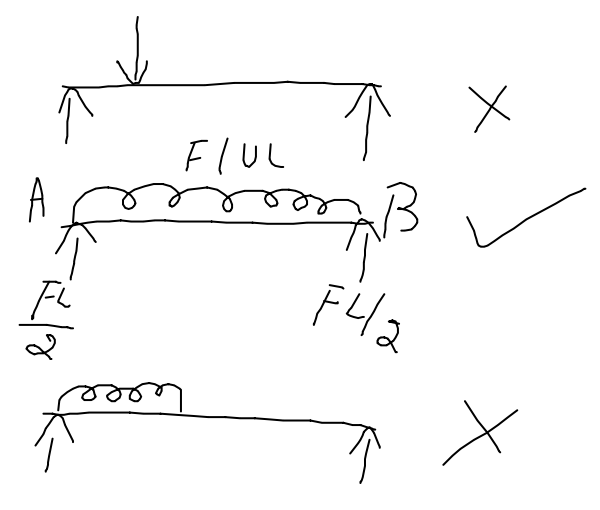 F/UL
A B
FL/2 FL/2